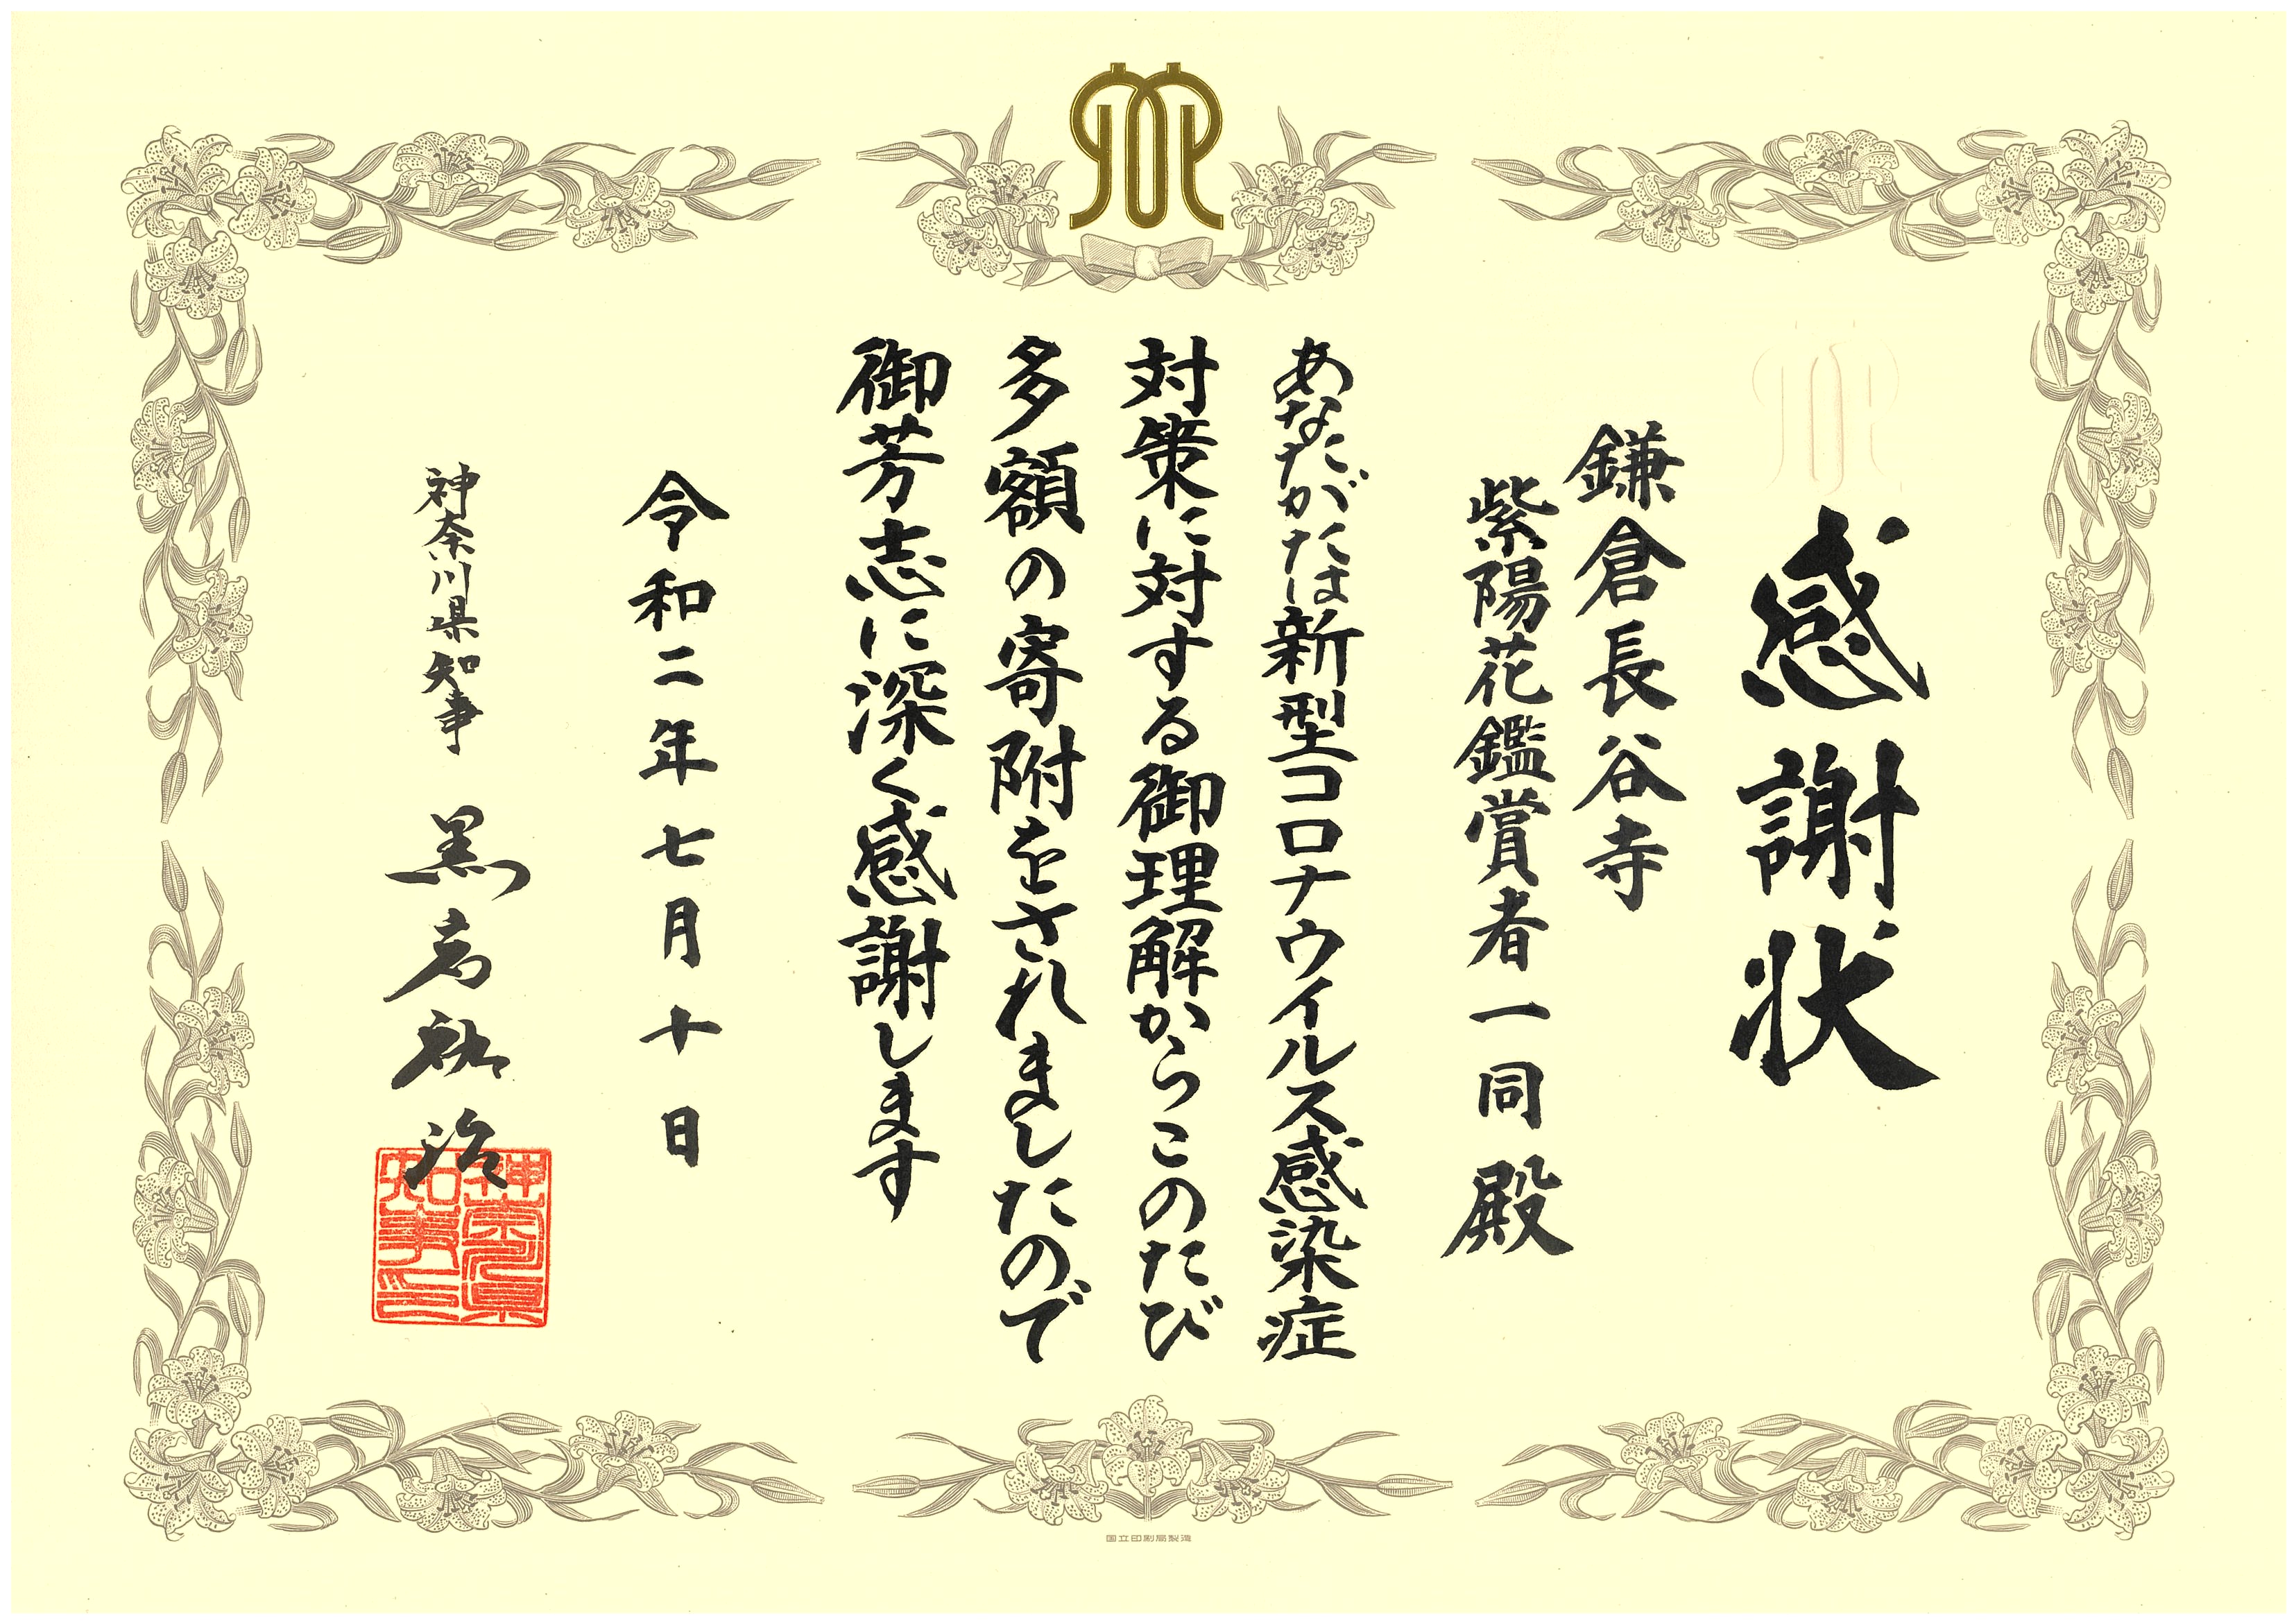 感謝状
鎌倉長谷寺
紫陽花鑑賞者一同 殿
あなたがたは新型コロナウイルス感染症
対策に対する御理解からこのたび
多額の寄附をされましたので
御芳志に深く感謝します
令和二年七月十日
神奈川県知事 黒岩祐治
神奈川県
知事之印
国立印刷局製造